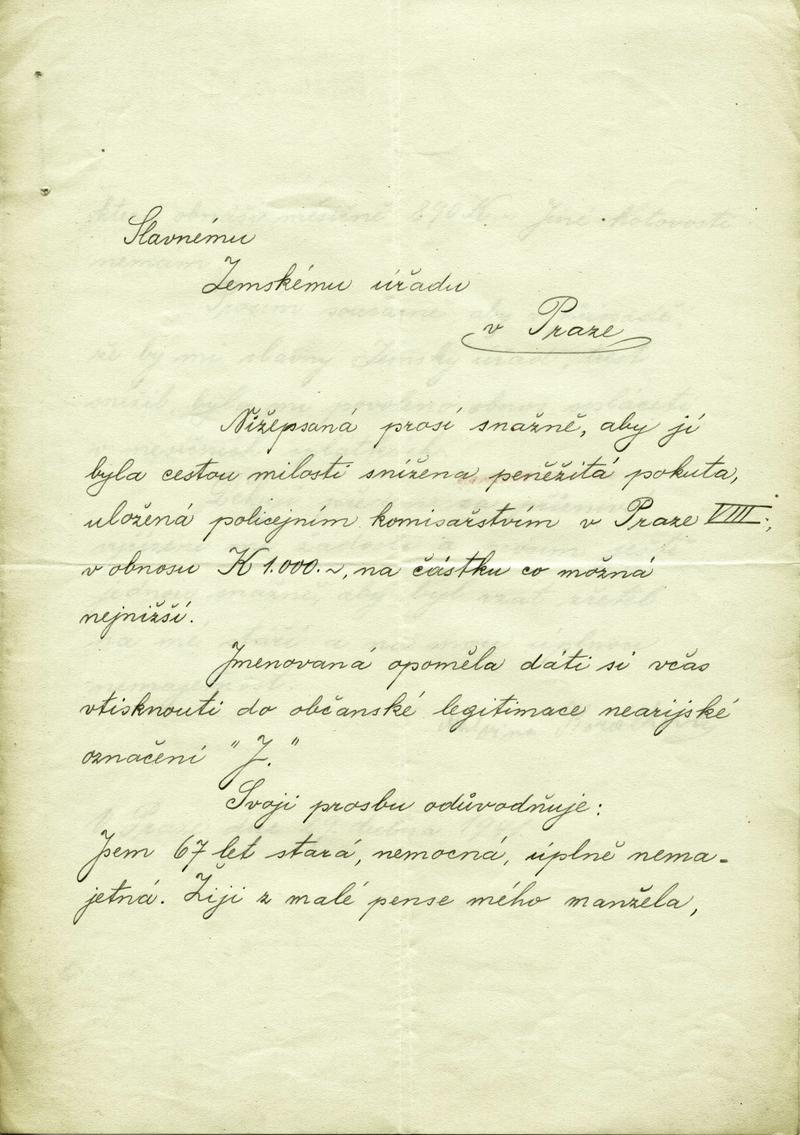 Slavnému
Zemskému úřadu
v Praze
Nížepsaná prosí snažně, aby jí
byla cestou milosti snížena peněžitá pokuta,
uložená policejním komisařstvím v Praze VIII.,
v obnosu K 1.000.~, na částku co možná
nejnižší.
Jmenovaná opoměla dáti si včas
vtisknouti do občanské legitimace nearijské
označení "J."
Svoji prosbu odůvodňuje:
Jsem 67 let stará, nemocná, úplně nema-
jetná. Žiji z malé pense mého manžela,